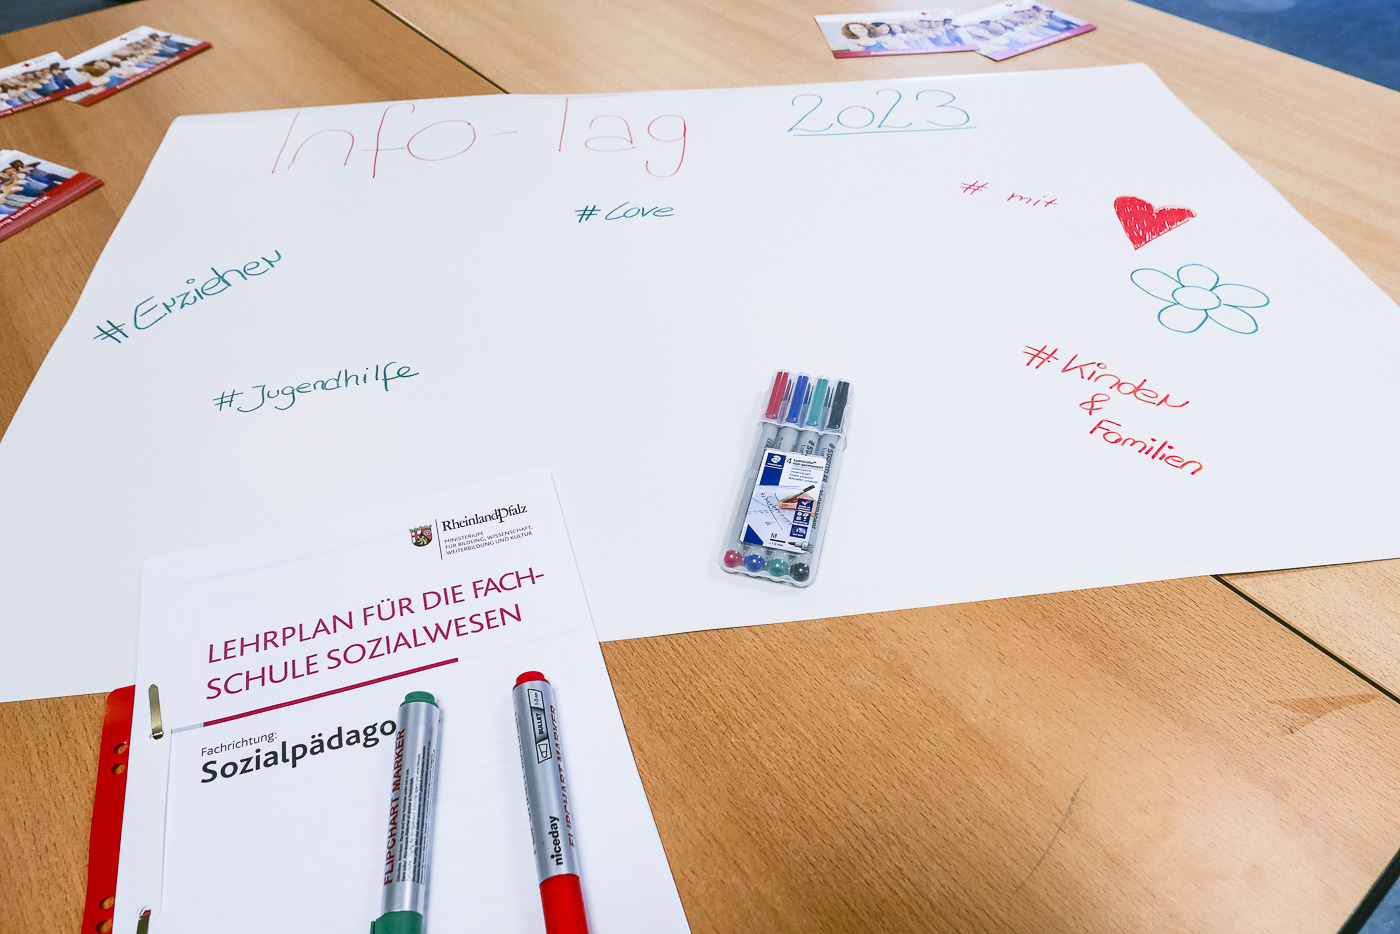 Info-Tag 2023
#Love
# mit
#Erzieher
#Jugendhilfe
#Kinder
&
Familien
RheinlandPfalz
MINISTERIUM
FÜR BILDUNG, WISSENSCHAFT,
WEITERBILDUNG UND KULTUR
LEHRPLAN FÜR DIE FACH-
SCHULE SOZIALWESEN
Fachrichtung:
Sozialpädago
FLIPCHART MARKER
niceday
FLIPCHART MARKER
BULLET
STAEDTLER
4 Lumocolor
non-permanent
M